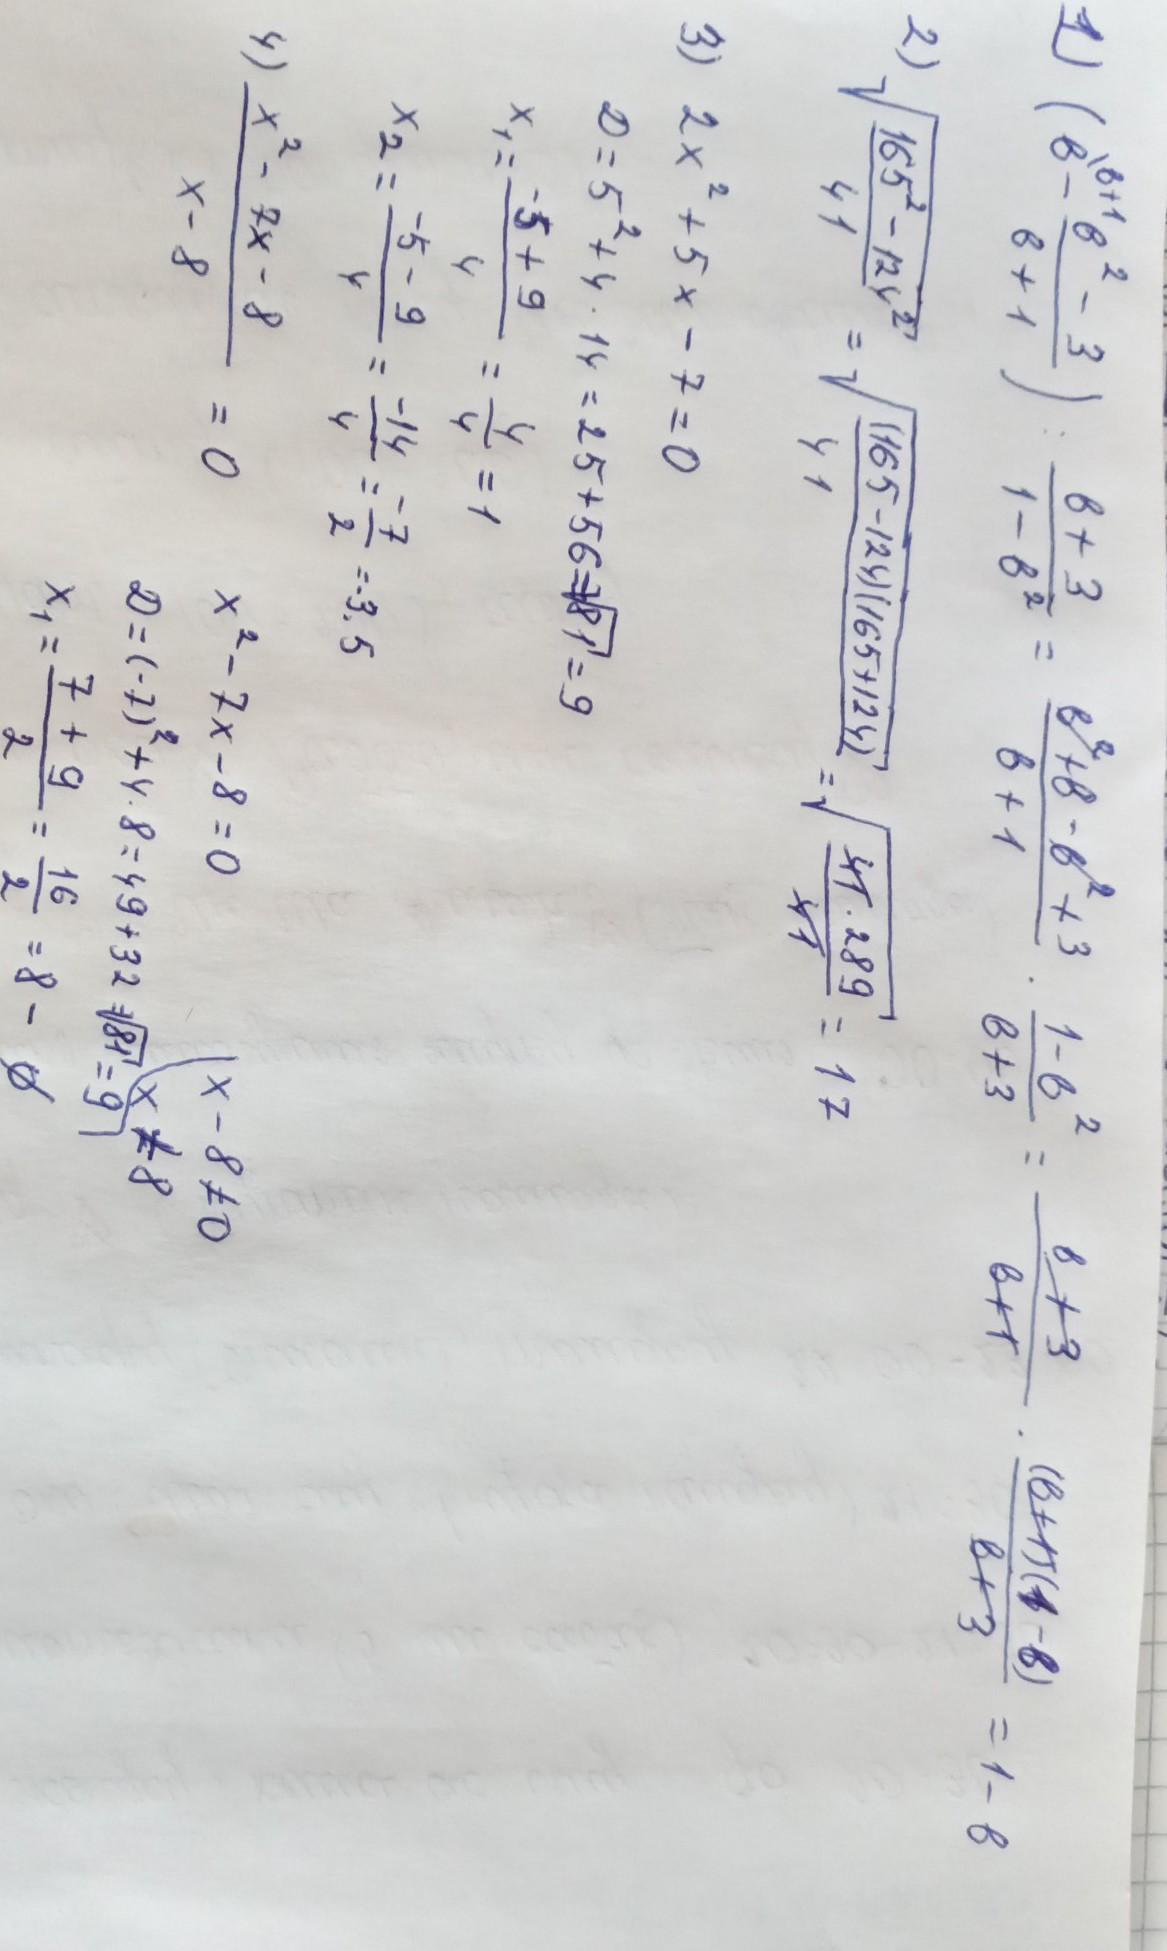 1) (в^{\в+1} - \frac{в² - 3}{в + 1}) : \frac{в + 3}{1 - в²} = \frac{в² + в - в² + 3}{в + 1} · \frac{1 - в²}{в + 3} = \frac{в + 3}{в + 1} · \frac{(в + 1)(1 - в)}{в + 3} = 1 - в
2) √\frac{165² - 124²}{41} = √\frac{(165 - 124)(165 + 124)}{41} = √\frac{41 · 289}{41} = 17
3) 2x² + 5x - 7 = 0
D = 5² + 4 · 14 = 25 + 56 = √81 = 9
x₁ = \frac{-5 + 9}{4} = \frac{4}{4} = 1
x₂ = \frac{-5 - 9}{4} = \frac{-14}{4} = \frac{-7}{2} = -3,5
4) \frac{x² - 7x - 8}{x - 8} = 0
x² - 7x - 8 = 0
x - 8 ≠ 0
x ≠ 8
D = (-7)² + 4 · 8 = 49 + 32 = √81 = 9
x₁ = \frac{7 + 9}{2} = \frac{16}{2} = 8 - ∅